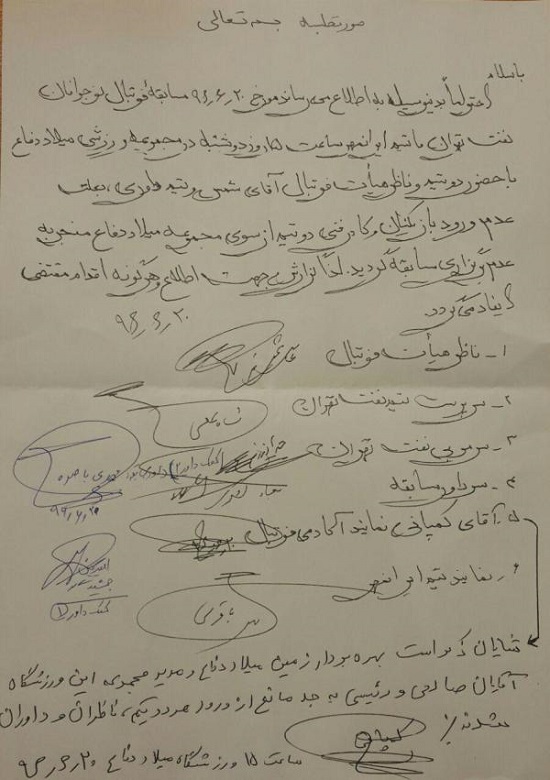 صورتجلسه بسمه تعالی
باسلام
احتراماً بدینوسیله به اطلاع می رساند مورخ ۹۶٫۶٫۲۰ مسابقه فوتبال نوجوانان
نفت تهران با تیم ایرانمهر ساعت ۱۵ روز دوشنبه در مجموعه ورزشی میلاد دفاع
با حضور دو تیم و ناظر هیأت فوتبال آقای شمس و تیم داوری، بعلت
عدم ورود بازیکنان و کادرفنی دو تیم از سوی مجموعه میلاد دفاع منجر به
عدم برگزاری مسابقه گردید. لذا گزارش جهت اطلاع و هرگونه اقدام مقتضی
ایفاد می گردد.
۹۶٫۶٫۲۰
۱- ناظر هیأت فوتبال
۲- سرپرست تیم نفت تهران
۳- سرمربی نفت تهران
کمک داور ۲
۴- سرداور مسابقه
۵- آقای کمپانی نماینده آکادمی فوتبال
۶- نماینده تیم ایرانمهر
کمک داور ۱
باقری
شایان ذکر است بهره بردار زمین میلاد دفاع و مدیر مجموعه این ورزشگاه
آقایان صالحی و رئیسی به جد مانع از ورود هر دو تیم، ناظران و داوران
شدند.
ساعت ۱۵ ورزشگاه میلاد دفاع ۹۶٫۶٫۲۰